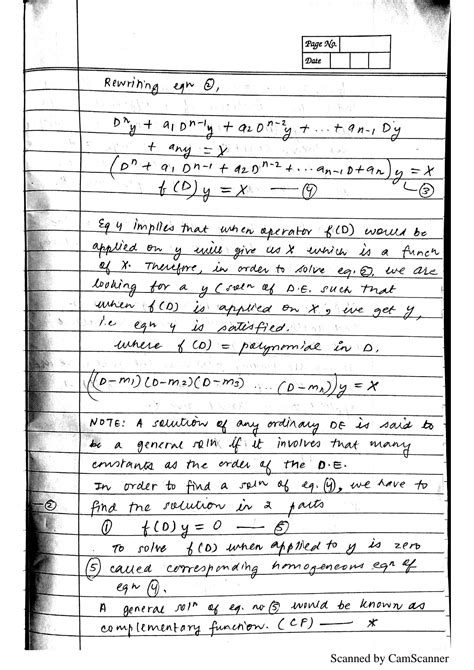 Page No.
Date
Rewriting eqn ②,
Dⁿy + a₁Dⁿ⁻¹y + a₂Dⁿ⁻²y + ... + aₙ₋₁Dy
+ any = X
(Dⁿ + a₁Dⁿ⁻¹ + a₂Dⁿ⁻² + ... aₙ₋₁D+aₙ)y = X
f(D)y = X — ④ ③
Eq 4 implies that when operator f(D) would be
applied on y will give us X which is a funcn
of X. Therefore, in order to solve eq. ②, we are
looking for a y (soln of D.E. such that
when f(D) is applied on X, we get y,
i.e eqn 4 is satisfied.
where f(D) = polynomial in D.
((D-m₁)(D-m₂)(D-m₃) .... (D-mₙ))y = X
NOTE: A solution of any ordinary DE is said to
be a general soln if it involves that many
constants as the order of the D.E.
In order to find a soln of eq. ④, we have to
② find the solution in 2 parts
① f(D)y = 0 — ⑤
To solve f(D) when applied to y is zero
⑤ called corresponding homogeneous eqn of
eqn ④.
A general soln of eq. no ⑤ would be known as
complementary function. (CF) — *
Scanned by CamScanner